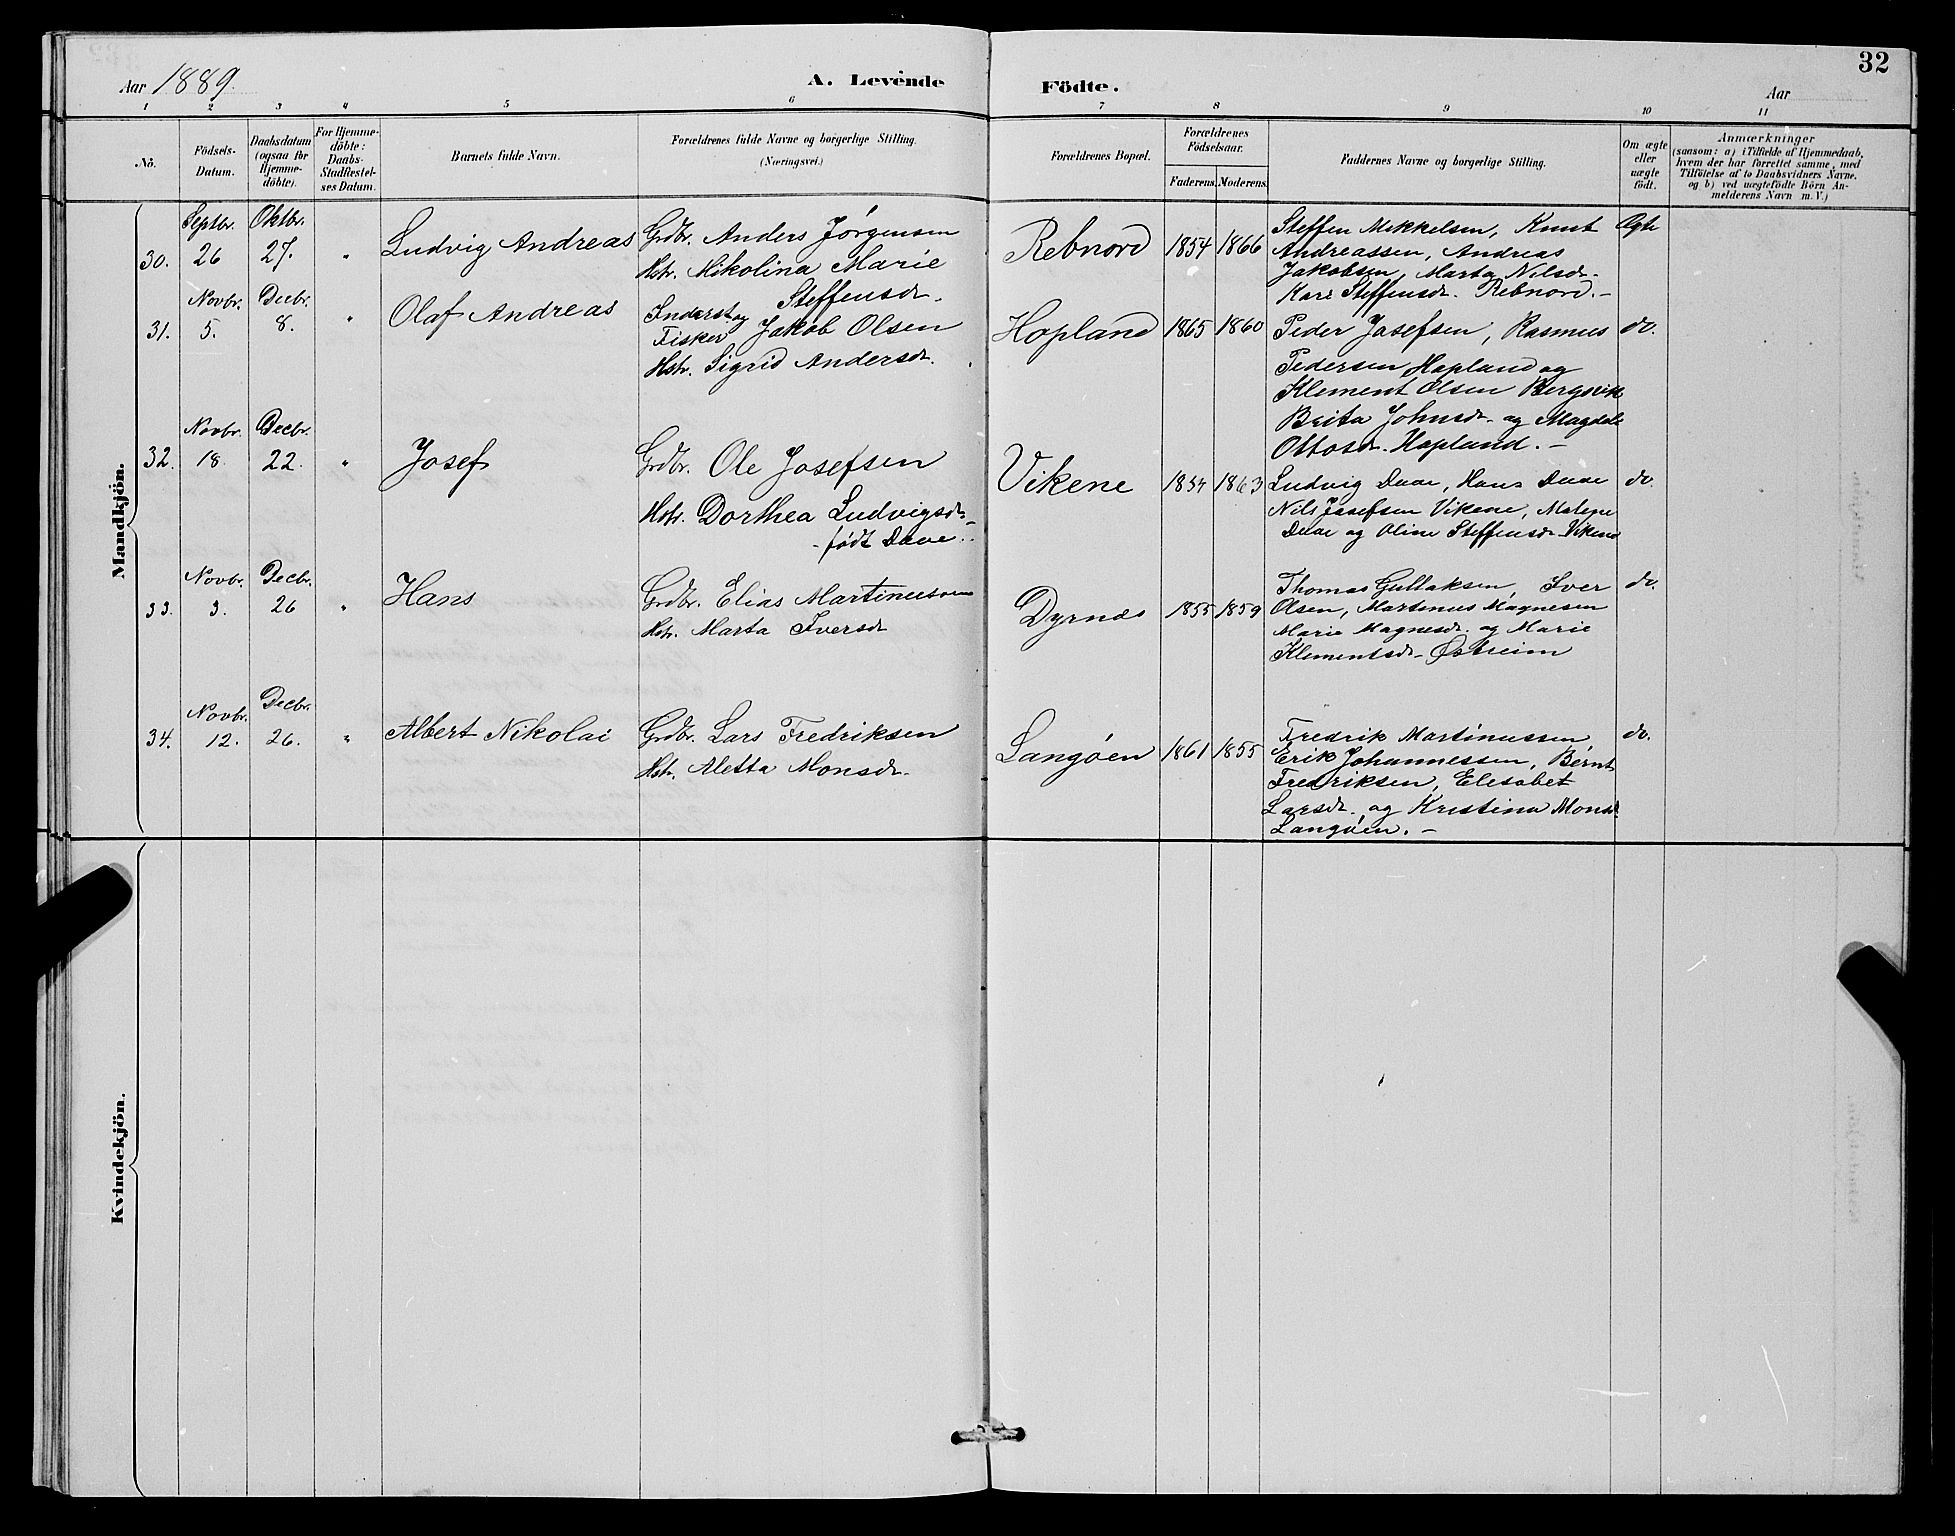 32
Aar 1889.
A. Levende Födte.
Aar
1 2 3 4 5 6 7 8 9 10 11
No.
Födsels-
Datum.
Daabsdatum
(ogsaa for
Hjemme-
döbte).
For Hjemme-
döbte:
Daabs-
Stadfæstel-
ses Datum.
Barnets fulde Navn.
Forældrenes fulde Navne og borgerlige Stilling.
(Næringsvei.)
Forældrenes Bopæl.
Forældrenes
Födselsaar.
Faderens. Moderens.
Faddernes Navne og borgerlige Stilling.
Om ægte
eller
uægte
födt.
Anmærkninger
(saasom: a) i Tilfælde af Hjemmedaab,
hvem der har forrettet samme, med
Tilföielse af to Daabsvidners Navne,
og b) ved uægtefödte Börn An-
melderens Navn m. V.)
Mandkjön.
30.
Septbr.
26
Oktbr.
27.
"
Ludvig Andreas
Grdbr. Anders Jørgensen
Hstr. Nikolina Marie
Steffensdr.
Rebnord
1854 1866
Steffen Mikkelsen, Knut
Andreassen, Andreas
Jakobsen, Marta Nilsdr.
Kari Steffensdr. Rebnord.-
Ægte
31.
Novbr.
5.
Decbr.
8.
"
Olaf Andreas
Inderst og
Fisker Jakob Olsen
Hstr. Sigrid Andersdr.
Hopland
1865 1860
Peder Josefsen, Rasmus
Pedersen Hopland og
Klement Olsen Bergsvik
Brita Johnsdr. og Magdele
Ottosdr. Hopland.-
do.
32.
Novbr.
18.
Decbr.
22.
"
Josef
Grdbr. Ole Josefsen
Hstr. Dorthea Ludvigsdr.
- født Daae.
Vikene
1854 1863
Ludvig Daae, Hans Daae
Nils Josefsen Vikene, Malene
Daae og Oline Steffensdr. Vikene
do.
33.
Novbr.
3.
Decbr.
26
"
Hans
Grdbr. Elias Martinussen
Hstr. Marta Iversdr
Dyrnæs
1855 1859
Thomas Gullaksen, Iver
Olsen, Martinus Magnesen
Marie Magnesdr. og Marie
Klementsdr. Østreim
do.
34.
Novbr.
12.
Decbr.
26.
"
Albert Nikolai
Grdbr. Lars Fredriksen
Hstr. Aletta Monsdr.
Langøen
1861 1855
Fredrik Martinussen
Erik Johannessen, Bernt
Fredriksen, Elisabet
Larsdr. og Kristina Monsdr.
Langøen.-
do.
Kvindekjön.